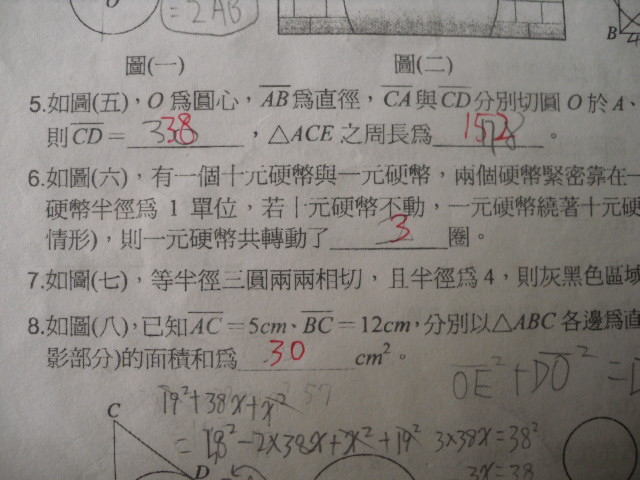 = 2AB
B
圖(一) 圖(二)
5.如圖(五)，O 為圓心，AB為直徑，CA與CD分別切圓 O 於 A、
則CD = 38 ，△ACE 之周長為 152 。
6.如圖(六)，有一個十元硬幣與一元硬幣，兩個硬幣緊密靠在一
硬幣半徑為 1 單位，若十元硬幣不動，一元硬幣繞著十元硬
情形)，則一元硬幣共轉動了 3 圈。
7.如圖(七)，等半徑三圓兩兩相切，且半徑為 4，則灰黑色區域
8.如圖(八)，已知AC = 5cm、BC = 12cm，分別以△ABC 各邊為直
影部分)的面積和為 30 cm²。
OE² + DO² =
19² + 38x + x² 57
C
= 19² - 2×38x + x² + 19² 3×38x = 38²
D 3x = 38